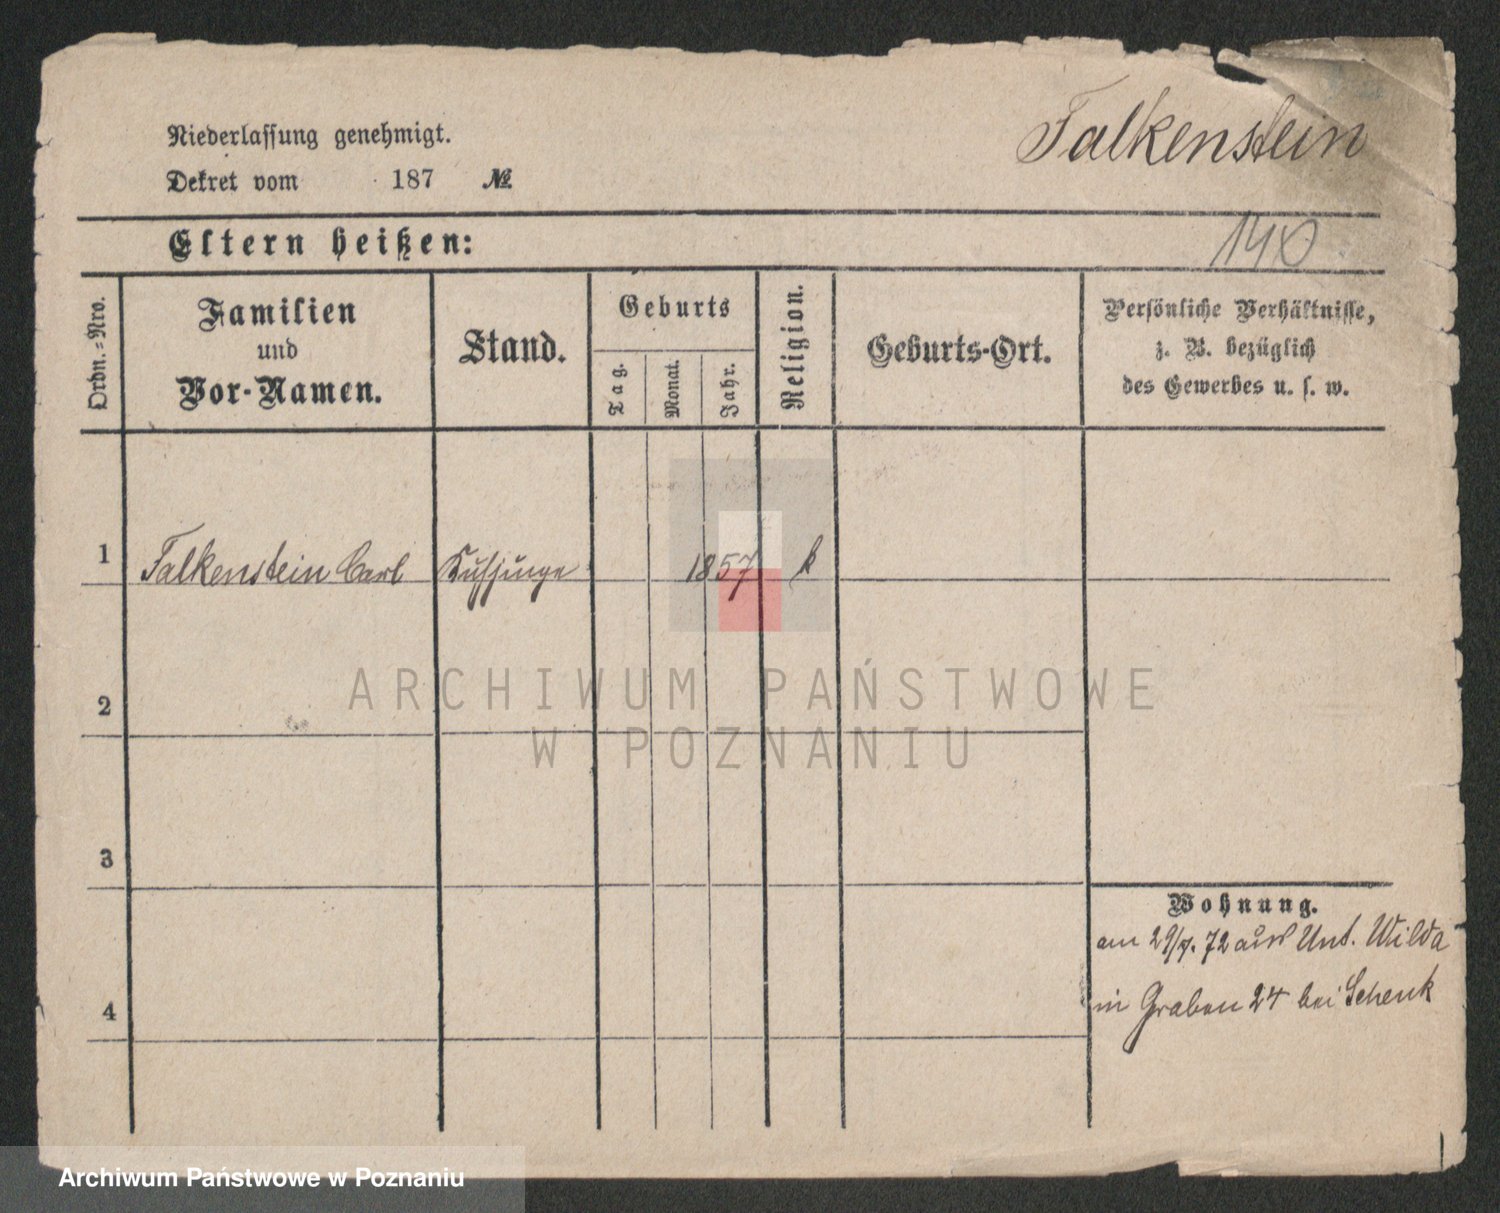 Falkenstein
Niederlassung genehmigt.
Dekret vom 187 №
Eltern heißen:
140
Ordn.-Nro.
Familien
und
Vor-Namen.
Stand.
Geburts
Tag.
Monat.
Jahr.
Religion.
Geburts-Ort.
Persönliche Verhältnisse,
z. B. bezüglich
des Gewerbes u. s. w.
1 Falkenstein Carl Kuhjunge 1857 k
2
3
4
Wohnung.
am 29/7. 72 aus Unt. Wilda
in Graben 24 bei Schenk
ARCHIWUM PAŃSTWOWE
W POZNANIU
Archiwum Państwowe w Poznaniu